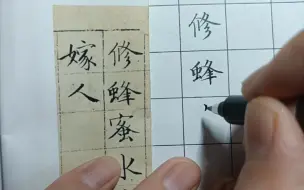 修蜂蜜水
嫁人
修蜂